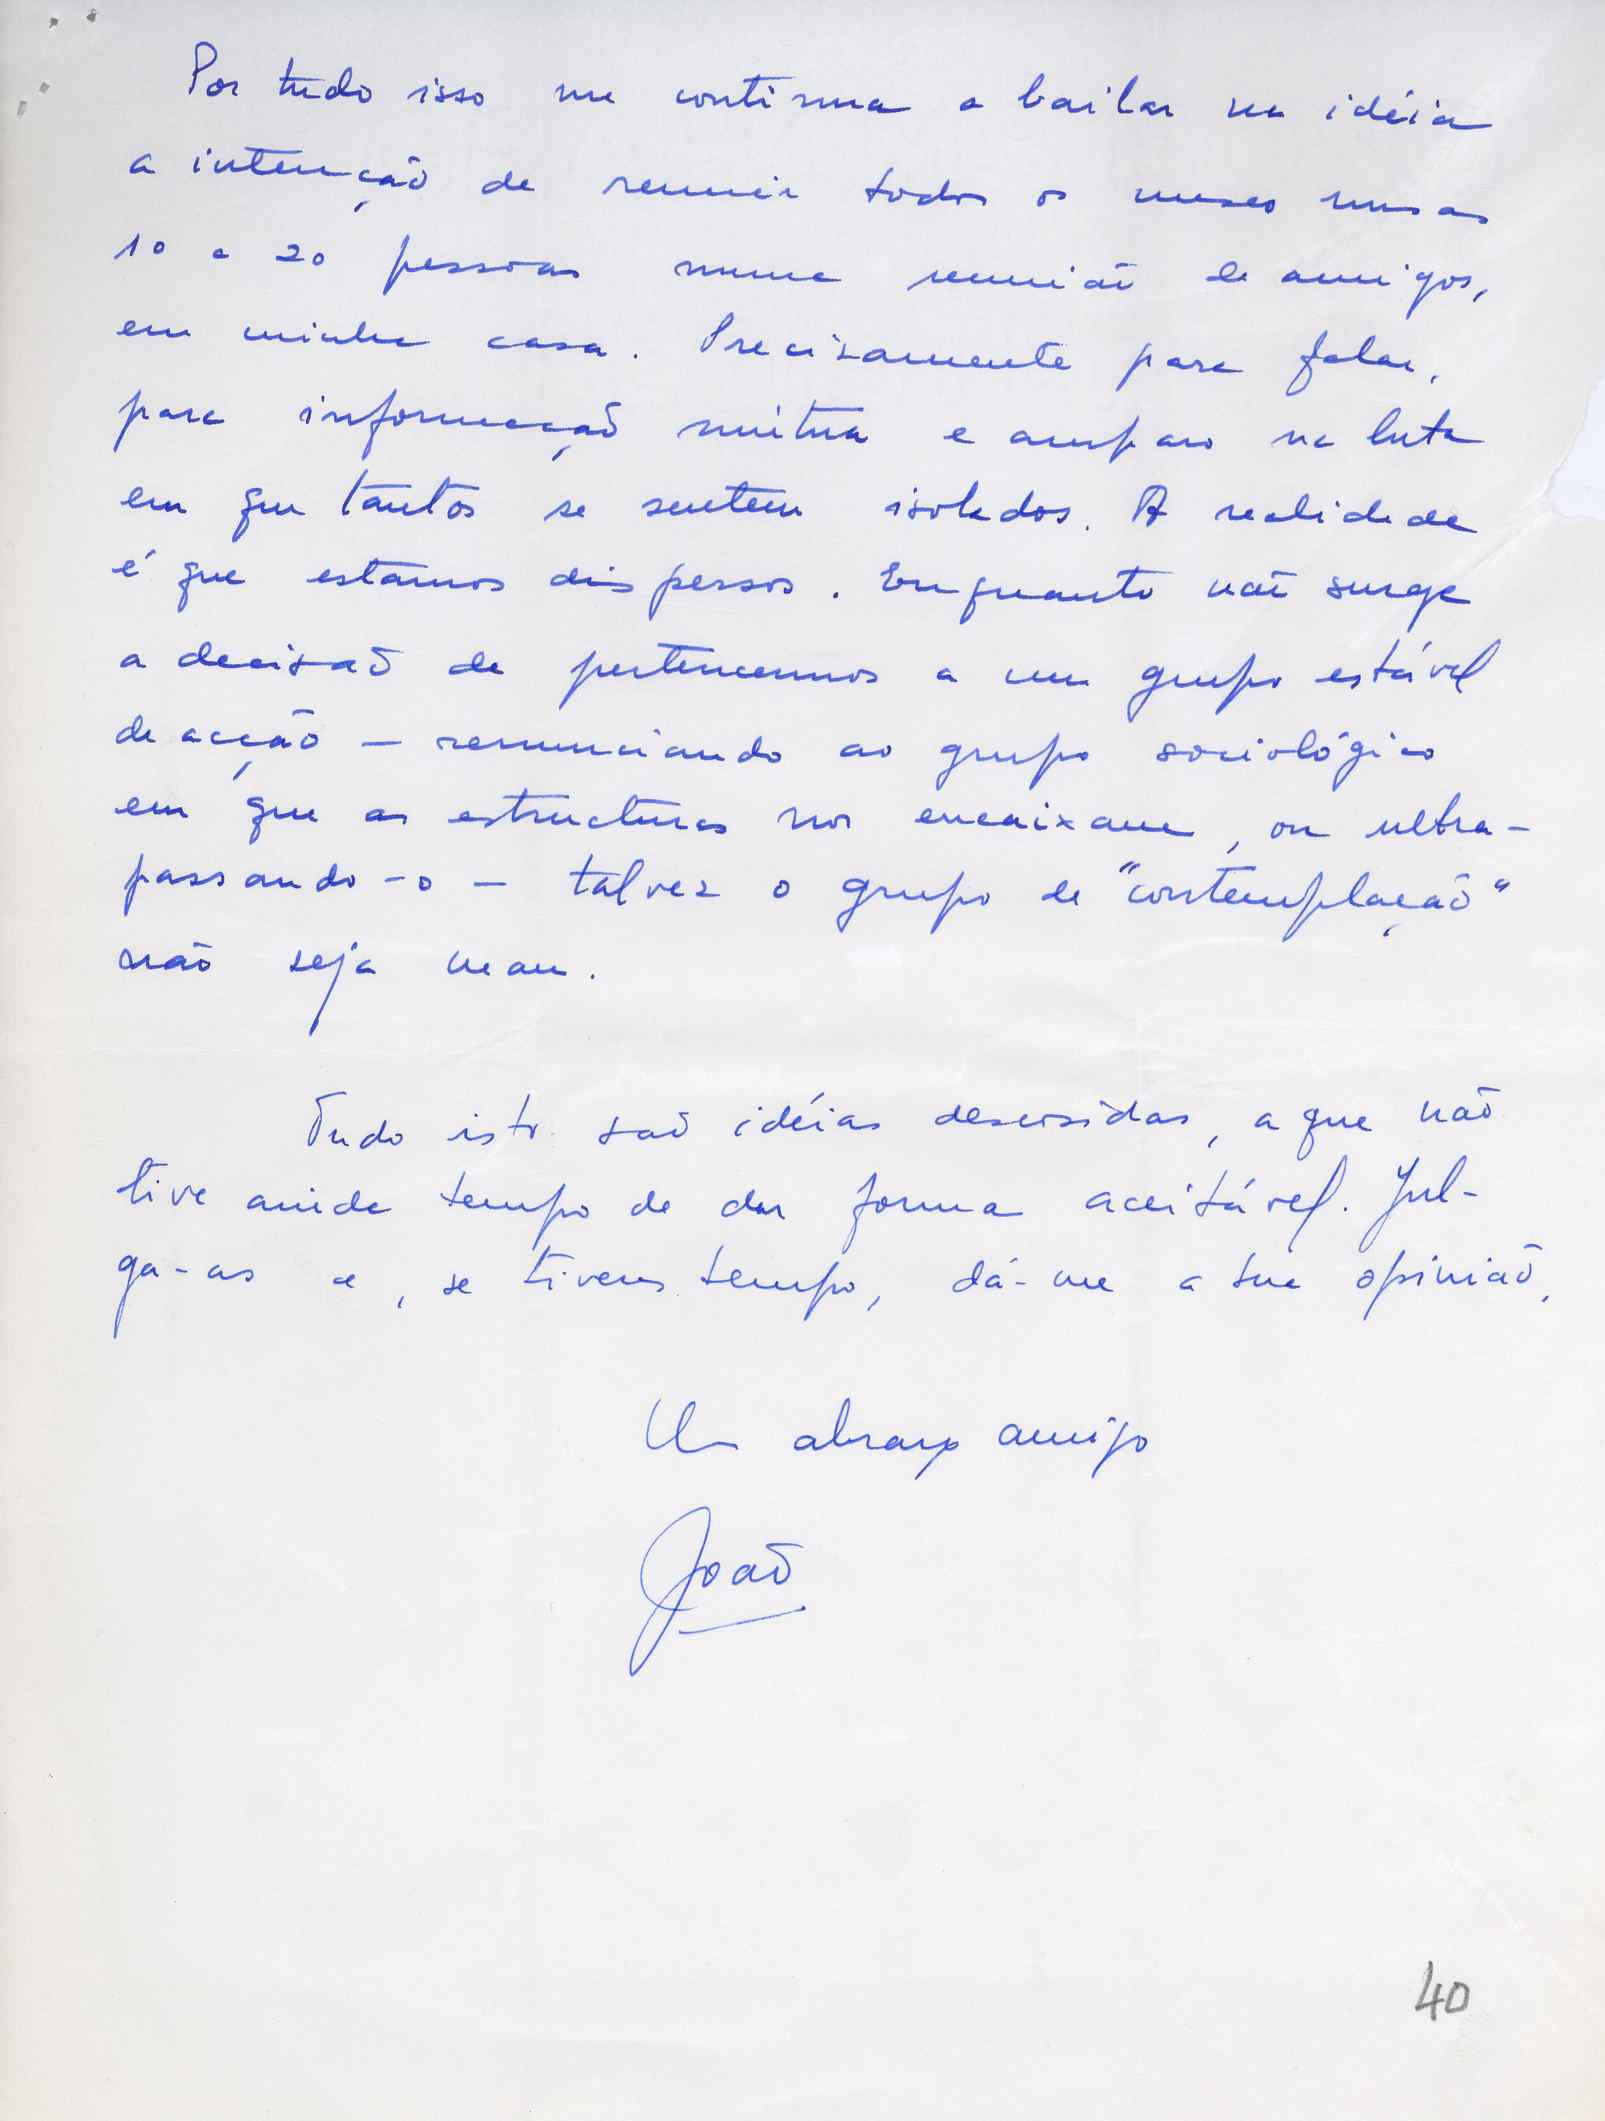 Por tudo isso me continua a bailar na idéia
a intenção de reunir todos os meses umas
10 a 20 pessoas numa reunião de amigos,
em minha casa. Precisamente para falar,
para informação mútua e amparo na luta
em que tantos se sentem isolados. A realidade
é que estamos dispersos. Enquanto não surge
a decisão de pertencermos a um grupo estável
de acção – renunciando ao grupo sociológico
em que as estructuras nos encaixam, ou ultra-
passando-o – talvez o grupo de "contemplação"
não seja mau.
Tudo isto são idéias descosidas, a que não
tive ainda tempo de dar forma aceitável. Jul-
ga-as e, se tiveres tempo, dá-me a tua opinião,
Um abraço amigo
João
40